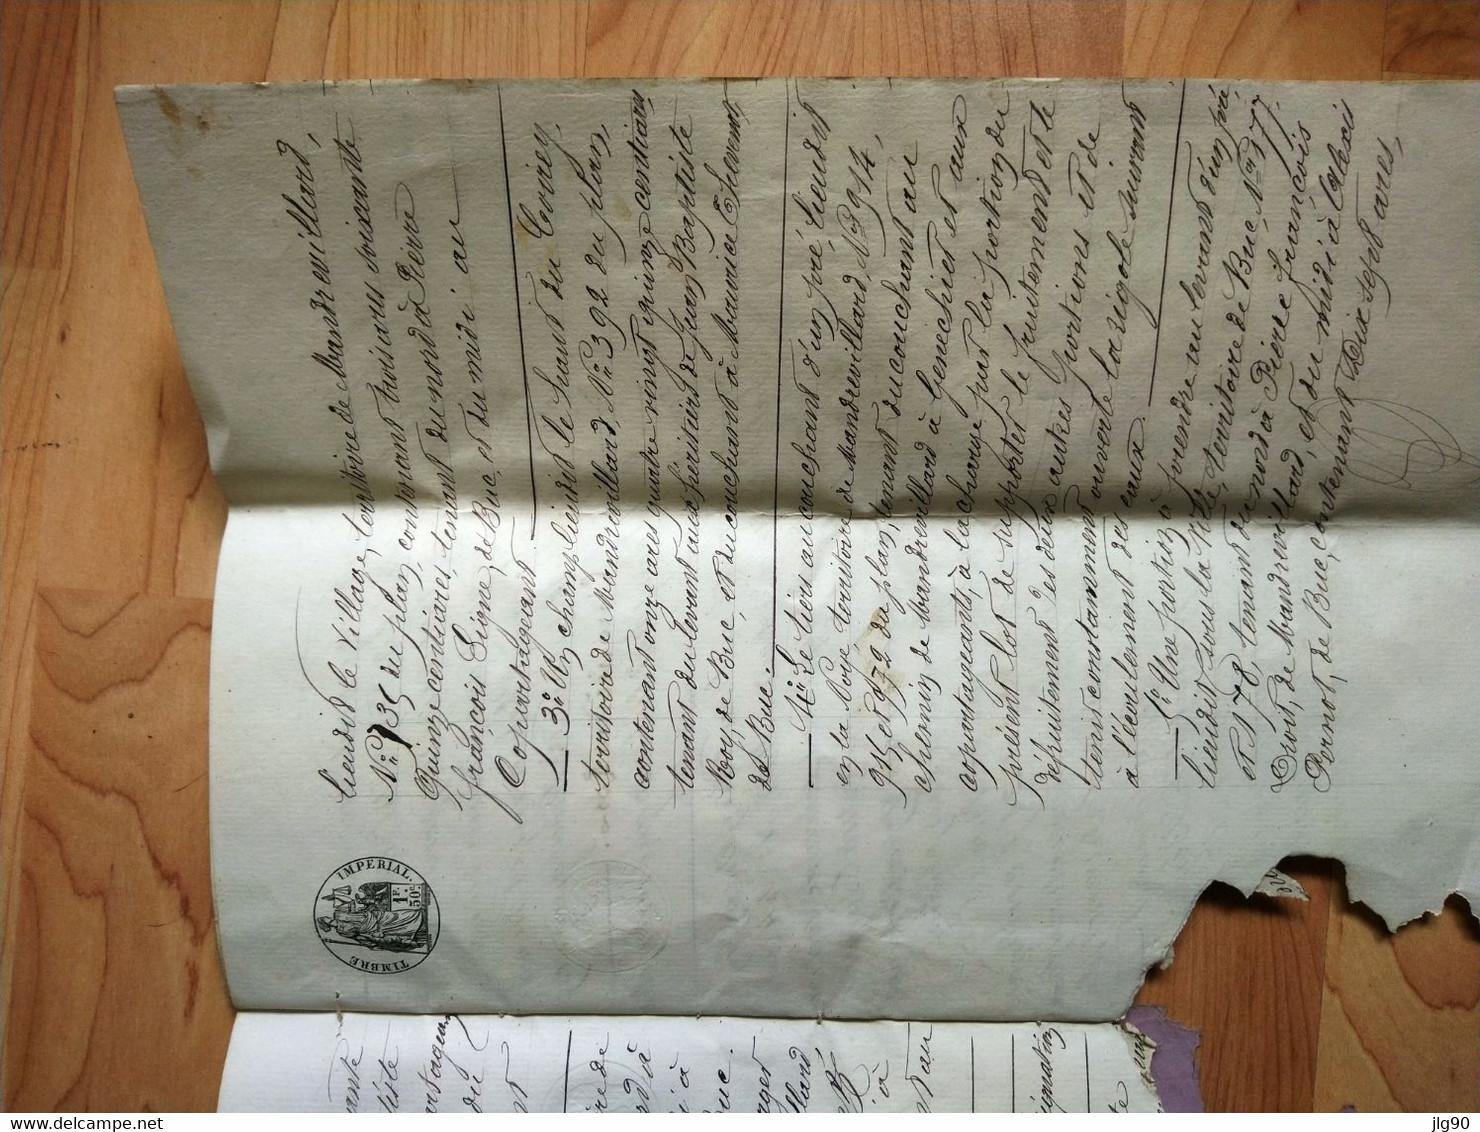 TIMBRE IMPERIAL.
1 F. 50 C.
lieudit le Village, territoire de Mandrevillard,
N° 135 du plan, contenant trois ares soixante
Quinze centiares, tenant du nord à Pierre
François Signe, de Buc, et du midi au
Copartageant.
3° Un champ lieudit le haut du Cerisey,
territoire de Mandrevillard, N° 392 du plan,
contenant onze ares quatre vingt quinze centiares,
tenant du levant aux héritiers de Jean Baptiste
Roy de Buc, et du couchant à Maurice Thevenot,
de Buc.
4° Le tiers au couchant d'un pré lieudit
en la Noye territoire de Mandrevillard, N° 914,
915 et 972 du plan, tenant du couchant au
chemin de Mandrevillard à Genechier et aux
copartageants, à la charge par la portion du
présent lot de supporter le fruitement et le
défruitement des deux autres portions et de
tenir constamment ouverte la rigole servant
à l'écoulement des eaux.
5° Une portion à prendre au levant d'un pré
lieudit sous la Côte, territoire de Buc, N° 77
et 78 tenant du nord à Pierre François
Droit, de Mandrevillard, et du midi à Alexis
Pernot, de Buc, contenant Dix sept ares,
ante
tiste
artageant
di
t
re de
rd à
i à
Buc.
rger
llard
à
t au
signation
jlg90
delcampe.net